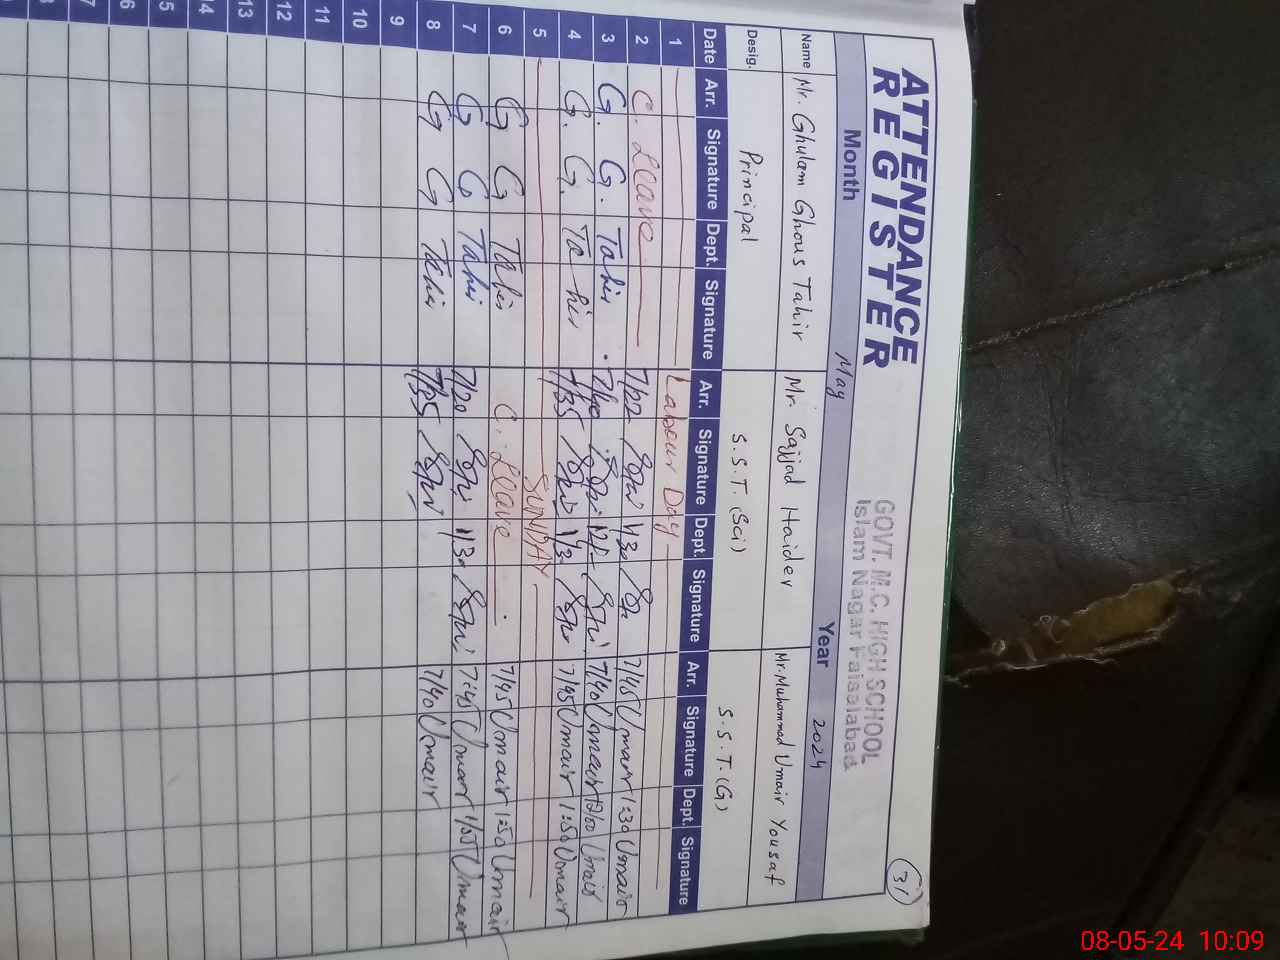 31
GOVT. M.C. HIGH SCHOOL
Islam Nagar Faisalabad
ATTENDANCE
REGISTER
Month May Year 2024
Name Mr. Ghulam Ghous Tahir Mr. Sajjad Haider Mr. Muhammad Umair Yousaf
Desig. Principal S.S.T. (Sci) S.S.T. (G)
Date Arr. Signature Dept. Signature Arr. Signature Dept. Signature Arr. Signature Dept. Signature
1 Labour Day
2 C. Leave 7/22 1/30 7/45 Umair 1:30 Umair
3 G. G. Tahir 7/40 12/- 7/40 Umair 12/00 Umair
4 G. G. Tahir 7/35 7/45 Umair 1:50 Umair
5 SUNDAY
6 G G Tahir C. Leave 7/45 Umair 1:50 Umair
7 G G Tahir 7/20 1/30 7:45 Umair Umair
8 G G Tahir 7/35 7/40 Umair
9
10
11
12
13
14
08-05-24 10:09